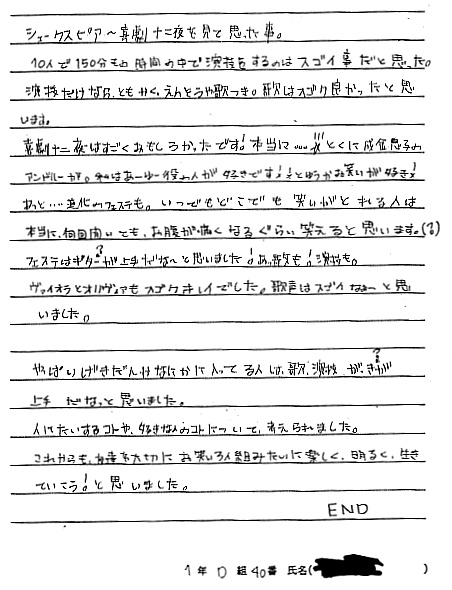 シェークスピア〜喜劇十二夜を見て思った事。
10人で150分もの時間の中で演技をするのはスゴイ事だと思った。
演技だけなら、ともかく、えんそうや歌つき。歌はスゴク良かったと思
います。
喜劇十二夜はすごくおもしろかったです!本当に…!!!とくに成金息子の
アンドルーが。私はあーゆー役の人が好きです!!とゆうかお笑いが好き!
あと…道化のフェステも。いつでもどこでも笑いがとれる人は
本当に、何回聞いても、お腹が痛くなるぐらい笑えると思います。(?)
フェステはギターが上手だな〜と思いました!あっ歌も!演技も。
ヴァイオラとオリヴィアもスゴクキレイでした。歌声はスゴイなぁ〜と思
いました。
やっぱりげきだんかなにかに入ってる人は、歌、演技が、
上手だなっと思いました。
人にたいするコトや、好きな人のコトについて、考えられました。
これからも、を大切にお笑い3人組みたいに楽しく、明るく、生き
ていこう!と思いました。
END
1年D組40番 氏名( )